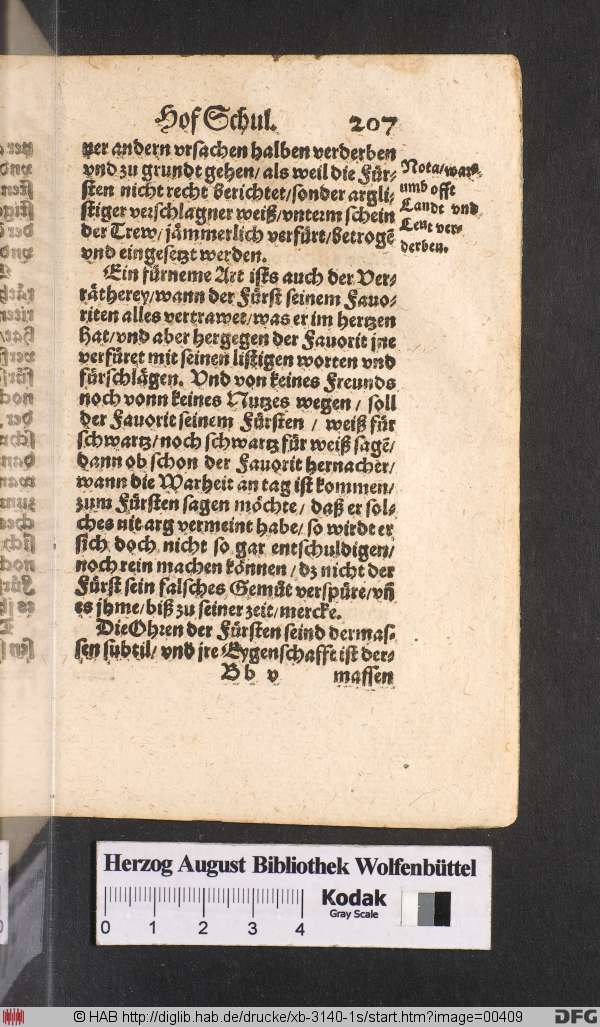 Hof Schul. 207
ner andern vrsachen halben verderben
vnd zu grundt gehen/ als weil die Für-
sten nicht recht berichtet/sonder argli-
stiger verschlagner weiß/vnterm schein
der Trew/ jämmerlich verfürt/betrogē
vnd eingesetzt werden.
Nota/war-
umb offt
Landt vnd
Leut ver-
derben.
Ein fürneme Art ists auch der Ver-
rätherey/wann der Fürst seinem Fauo-
riten alles vertrawet/was er im hertzen
hat/vnd aber hergegen der Fauorit jne
verfüret mit seinen listigen worten vnd
fürschlägen. Vnd von keines Freunds
noch vonn keines Nutzes wegen/ soll
der Fauorit seinem Fürsten / weiß für
schwartz/noch schwartz für weiß sagē/
dann ob schon der Fauorit hernacher/
wann die Warheit an tag ist kommen/
zum Fürsten sagen möchte/ daß er sol-
ches nit arg vermeint habe/ so wirdt er
sich doch nicht so gar entschuldigen/
noch rein machen können/ dz nicht der
Fürst sein falsches Gemüt verspüre/vñ
es jhme/ biß zu seiner zeit/mercke.
Die Ohren der Fürsten seind dermas-
sen subtil/ vnd jre Eygenschafft ist der-
B b v massen
Herzog August Bibliothek Wolfenbüttel
Kodak
Gray Scale
0 1 2 3 4
© HAB http://diglib.hab.de/drucke/xb-3140-1s/start.htm?image=00409
DFG